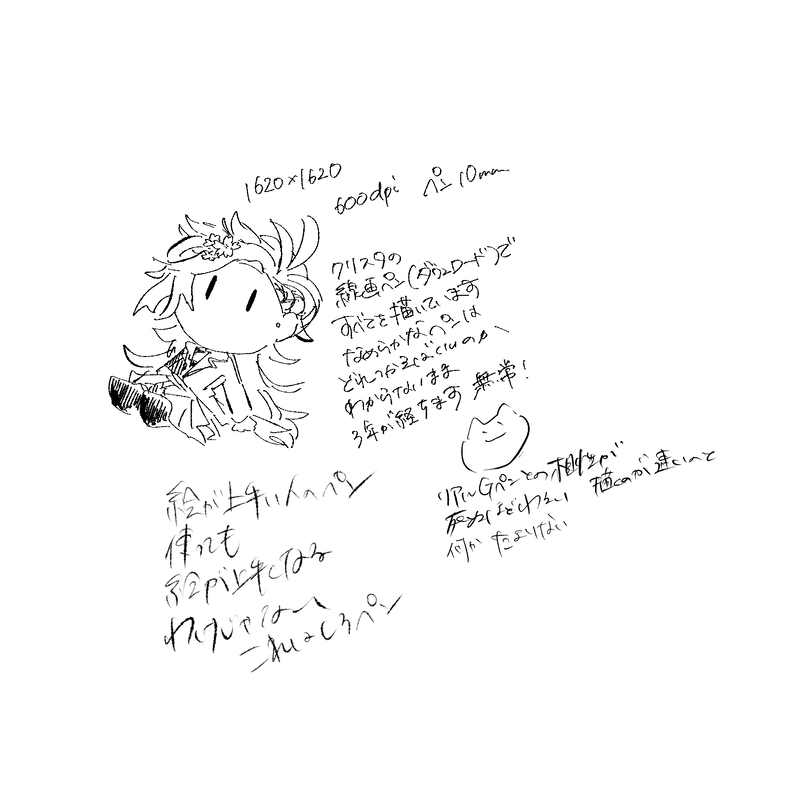 1620×1620
600dpi ペン10mm
クリスタの
線画ペン(ダウンロード)で
すべてを描いています
なめらかなペンは
どれつかえばいいのか
わからないまま
3年が経ちます 無常!
リアルGペンとの相性が
死ぬほどわるい 描くのが速いひと
何か たよりない
絵が上手い人のペン
使っても
絵が上手くなる
わけじゃない
これはしろペン